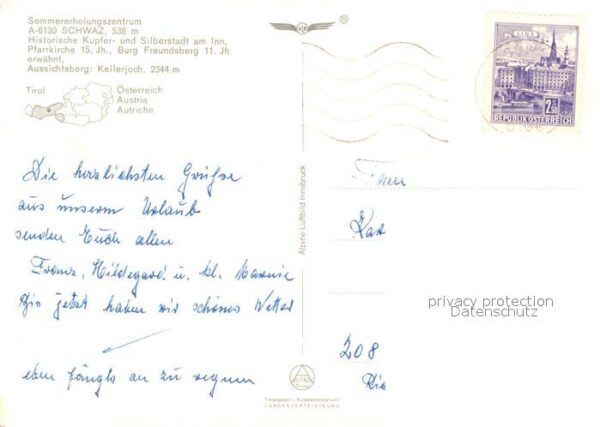 Sommererholungszentrum
A-6130 SCHWAZ, 538 m
Historische Kupfer- und Silberstadt am Inn,
Pfarrkirche 15. Jh., Burg Freundsberg 11. Jh.
erwähnt,
Aussichtsberg: Kellerjoch, 2344 m
Tirol
Österreich
Austria
Autriche
LINZ
2.50
REPUBLIK ÖSTERREICH
Die herzlichsten Grüße
aus unserem Urlaub
senden Euch allen
Franz, Hildegard u. kl.
Bis jetzt haben wir schönes Wetter
eben fängts an zu regnen
Alpine Luftbild Innsbruck
privacy protection
Datenschutz
208
LANDESVERTEIDIGUNG